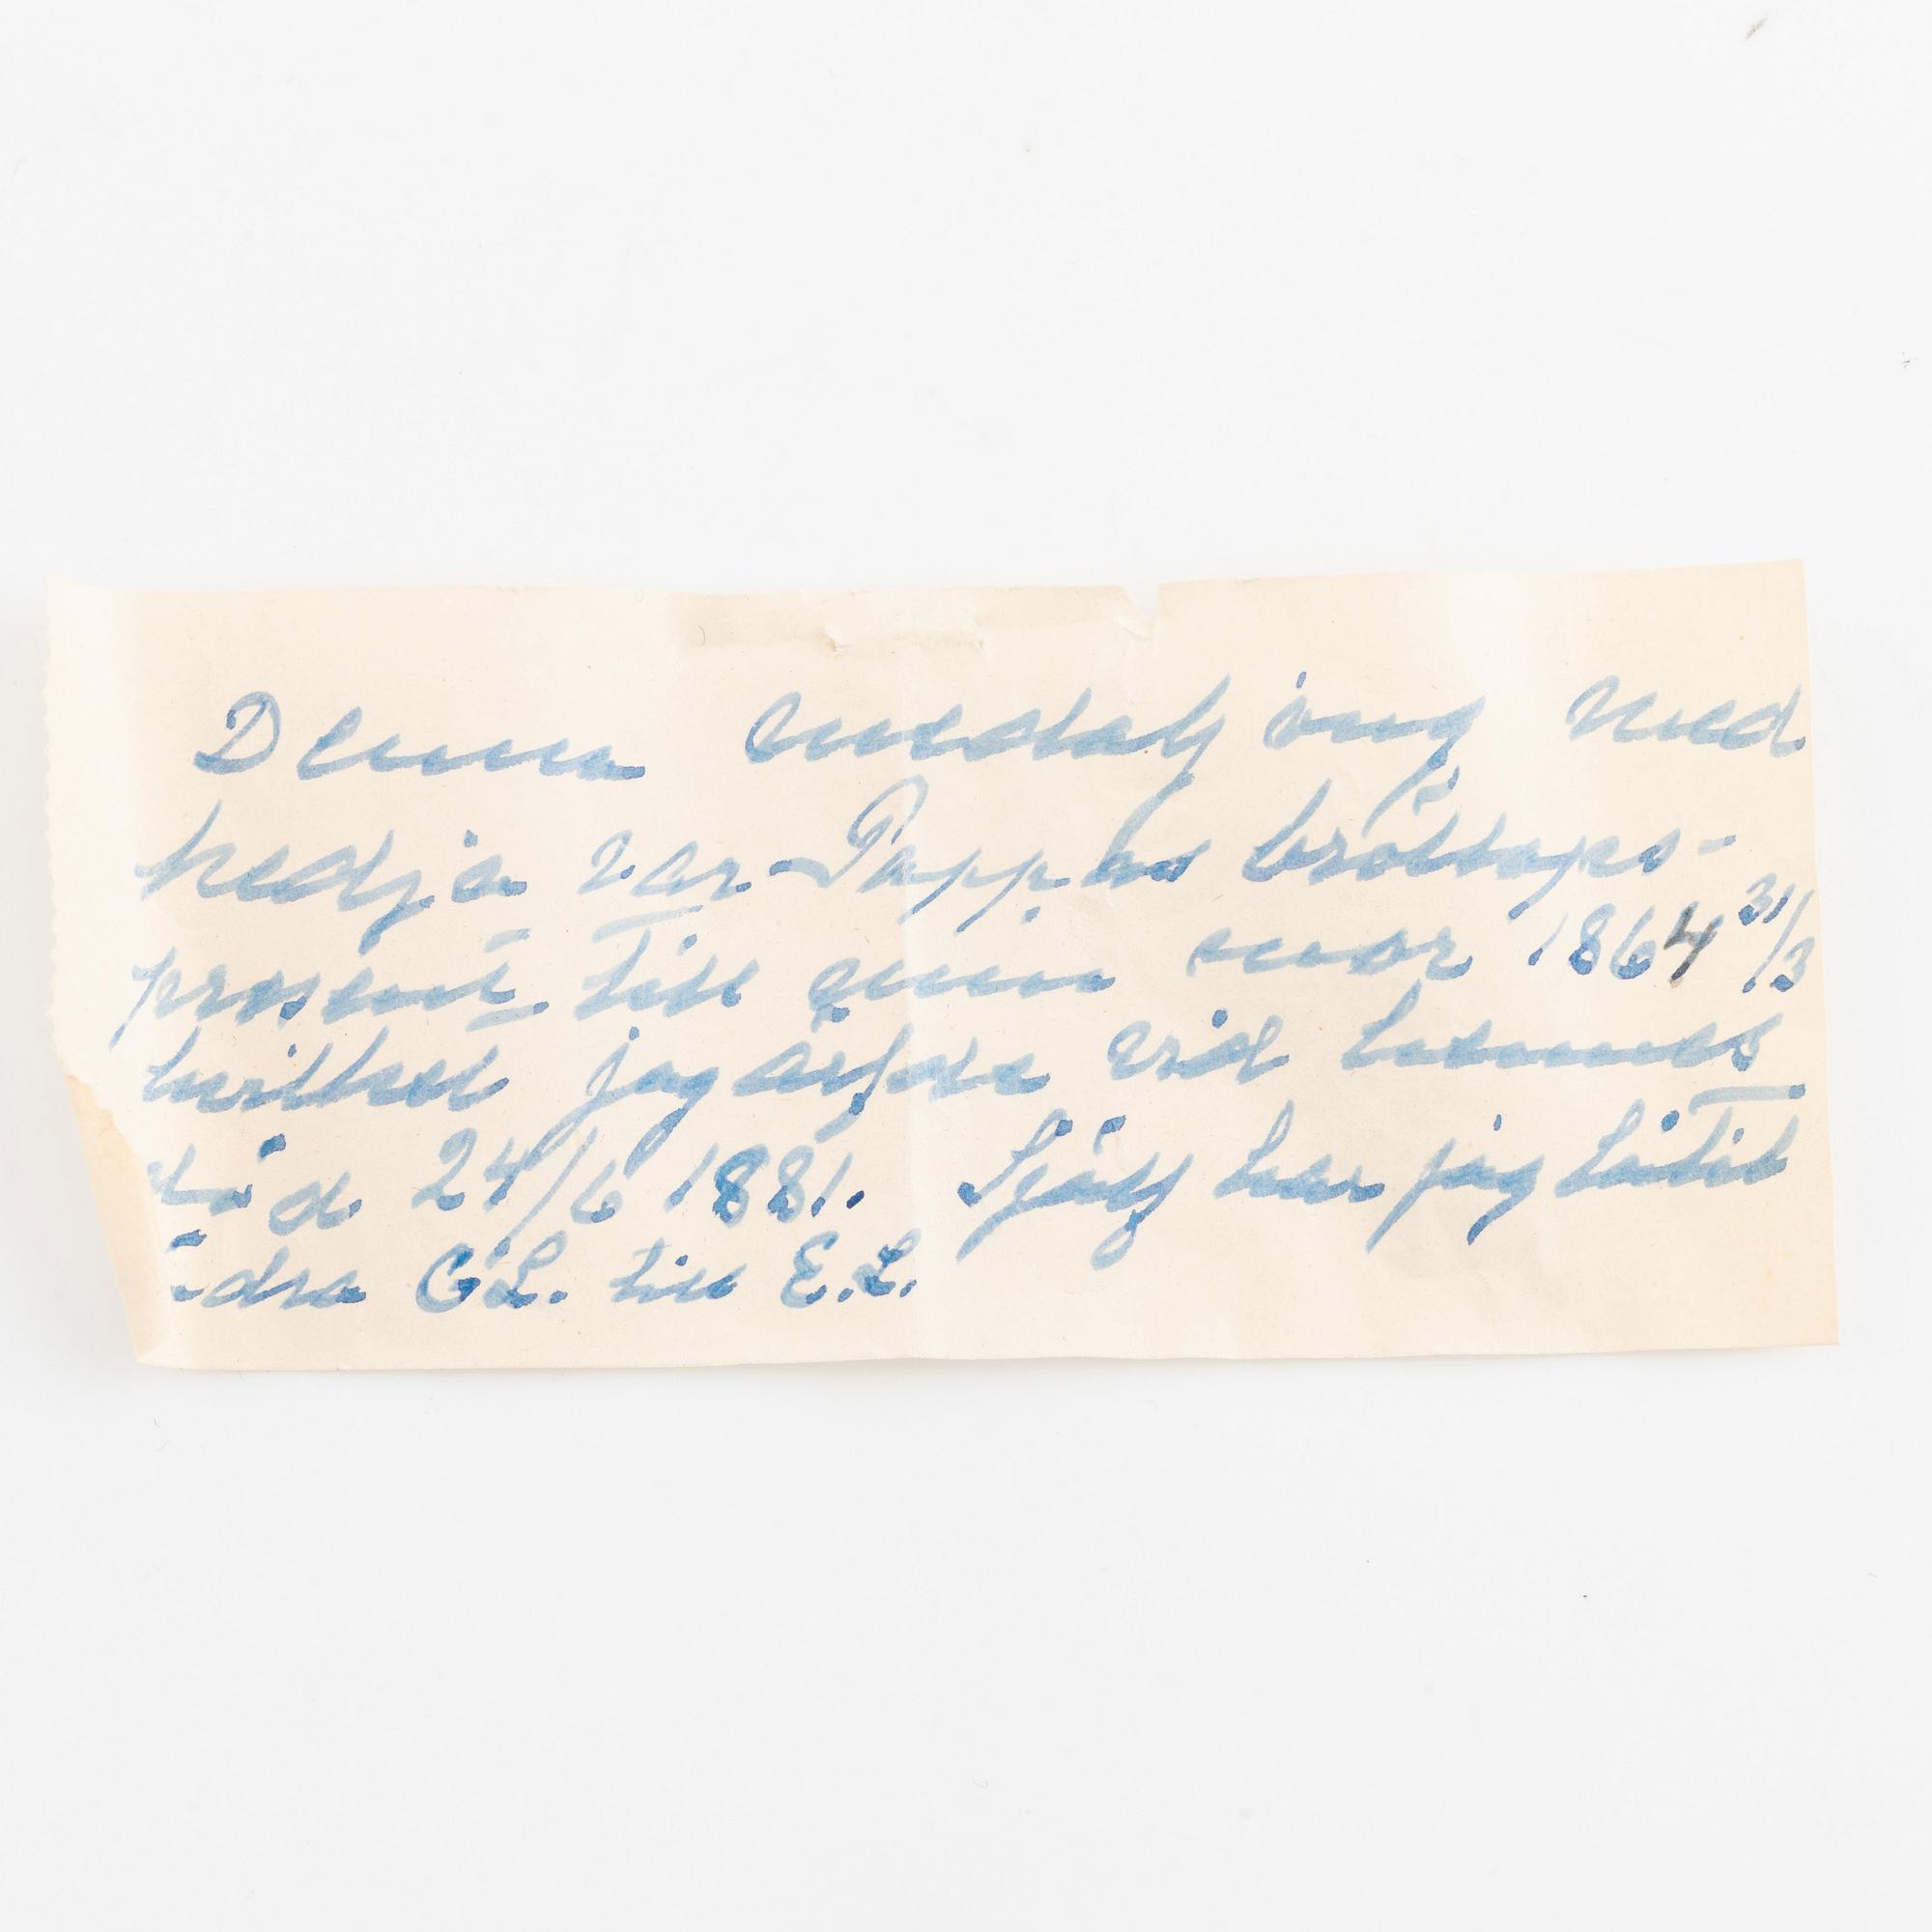 Denna medalj ång med
kedja var Pappas bröllops-
present till min mor 1864 31/3
hvilket jag ärfde vid hennes
död 24/6 1881. Sjelf har jag låtit
ändra G.L. till E.L.